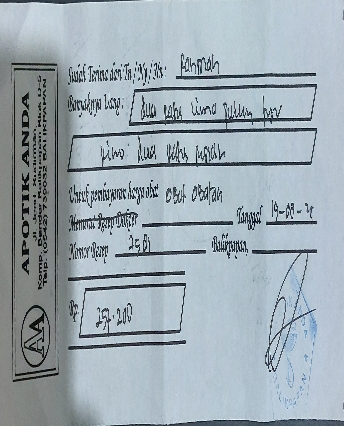 APOTIK ANDA
Jl. Jend. Sudirman
Komp. Bandar Balikpapan Blok
Telp. (0542) 739032 BALIKPAPAN
AA
Sudah Terima dari Tn/Ny/Nn: Rahmah
Banyaknya Uang: dua ratus lima puluh
dua ratus rupiah
Untuk pembayaran harga obat: Obat Obatan
Menurut Resep Dokter
Tanggal 19-08-
Nomor Resep 2581
Balikpapan,
Rp 257.200